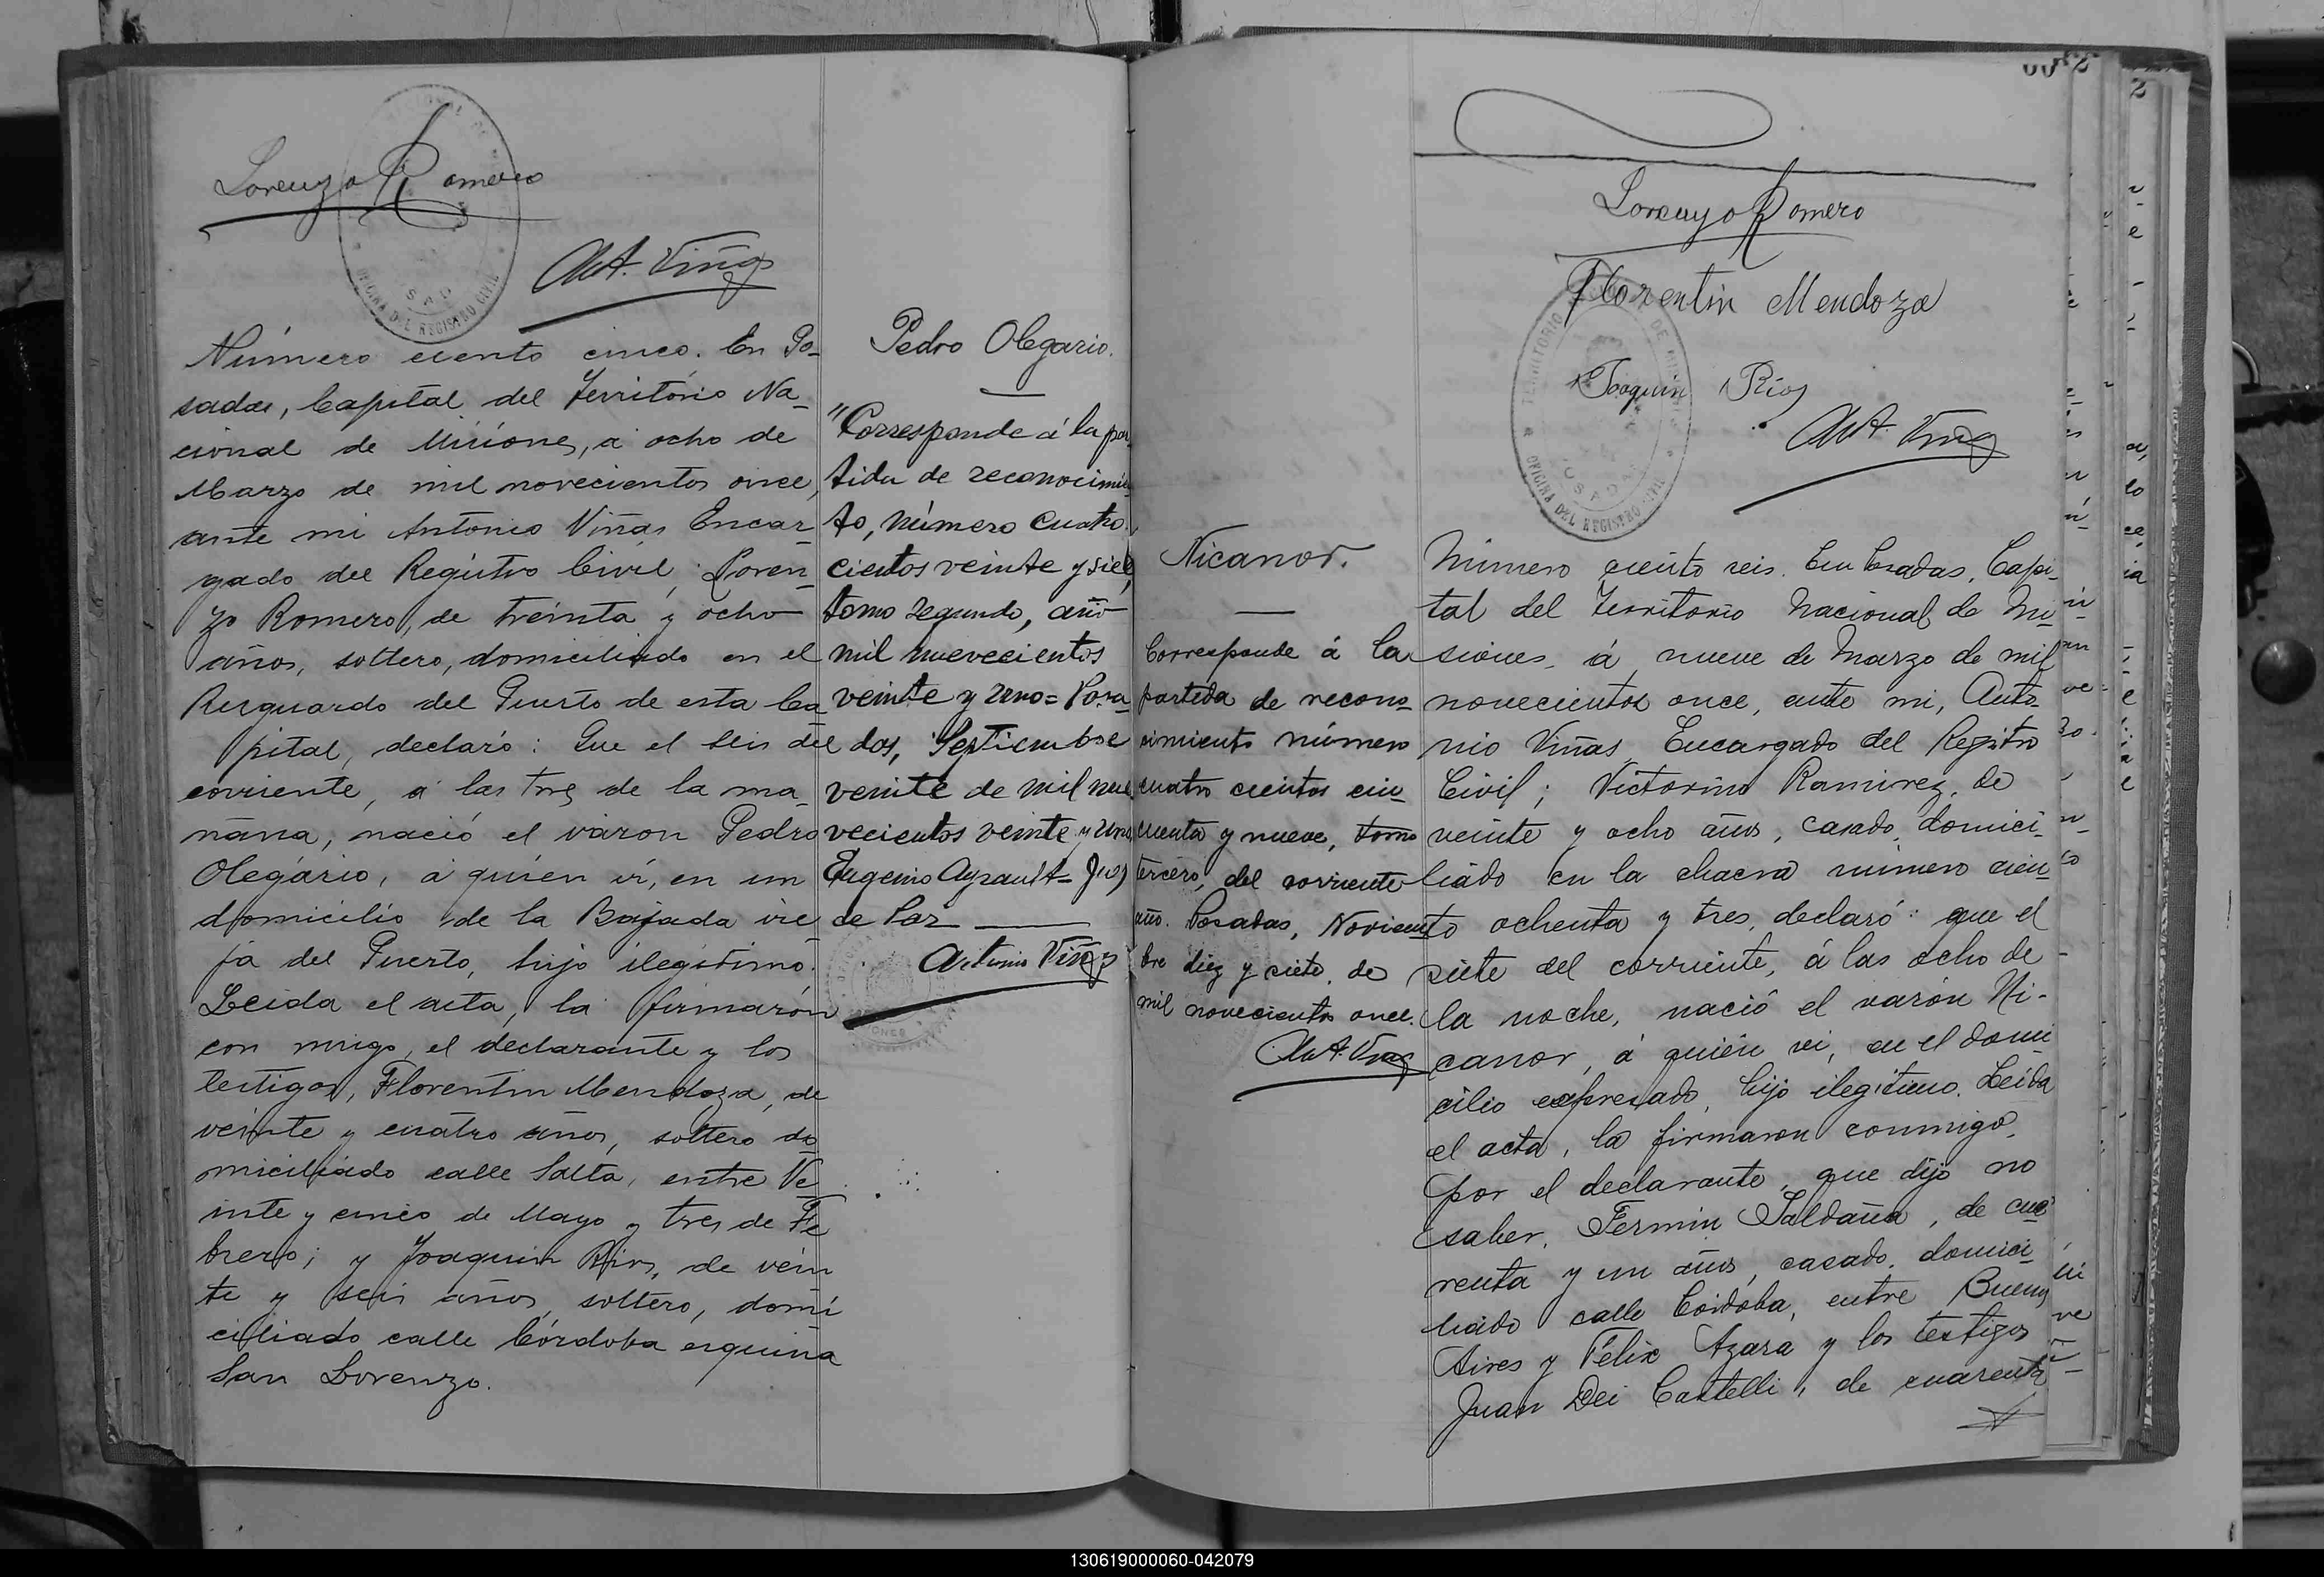 Lorenzo Romero
Ant. Viñas
OFICINA DEL REGISTRO CIVIL
Número ciento cinco. En Po-
sadas, Capital del Territorio Na-
cional de Misiones, a ocho de
Marzo de mil novecientos once,
ante mi Antonio Viñas Encar-
gado del Registro Civil, Loren-
zo Romero, de treinta y ocho
años, soltero, domiciliado en el
Resguardo del Puerto de esta Ca-
pital, declaró: Que el seis del
corriente, a las tres de la ma-
ñana, nació el varon Pedro
Olegário, a quién ví, en un
domicilio de la Bajada vie-
ja del Puerto, hijo ilegítimo.
Leida el acta, la firmarón
con migo, el declarante y los
testigos, Florentin Mendoza, de
veinte y cuatro años, soltero do-
miciliado calle Salta, entre Ve-
inte y cinco de Mayo y tres de Fe-
brero; y Joaquin Rios, de vein
te y seis años, soltero, domi
ciliado calle Córdoba esquina
San Lorenzo.
Pedro Olegario.
"Corresponde á la par-
tida de reconocimien-
to, número cuatro-
cientos veinte y siete,
tomo segundo, año
mil nuevecientos
veinte y uno= Posa-
das, Septiembre
veinte de mil nue-
vecientos veinte y uno
Eugenio Ayrault- Juez
de Paz
Antonio Viñas
Nicanor.
Corresponde á la
partida de recono-
cimiento número
cuatro cientos cin-
cuenta y nueve, tomo
tercero, del corriente
año. Posadas, Noviem-
bre diez y siete de
mil novecientos once.
Ant. Viñas
Lorenzo Romero
Florentin Mendoza
Joaquin Rios
Ant. Viñas
TERRITORIO DE MISIONES
OFICINA DEL REGISTRO CIVIL
Número ciento seis. En Posadas, Capi-
tal del Territorio Nacional de Mi-
siones, á nueve de Marzo de mil
novecientos once, ante mi, Anto-
nio Viñas, Encargado del Registro
Civil; Victorino Ramirez, de
veinte y ocho años, casado, domici-
liado en la chacra número cien-
to ochenta y tres, declaró: que el
siete del corriente, á las ocho de
la noche, nació el varón Ni-
canor, á quién vi, en el domi
cilio expresado, hijo ilegitimo. Leida
el acta, la firmaron conmigo,
por el declarante, que dijo no
saber, Fermin Saldaña, de cua
renta y un años, casado, domici-
liado calle Córdoba, entre Buenos
Aires y Félix Azara y los testigos
Juan Dei Castelli, de cuarenta
130619000060-042079